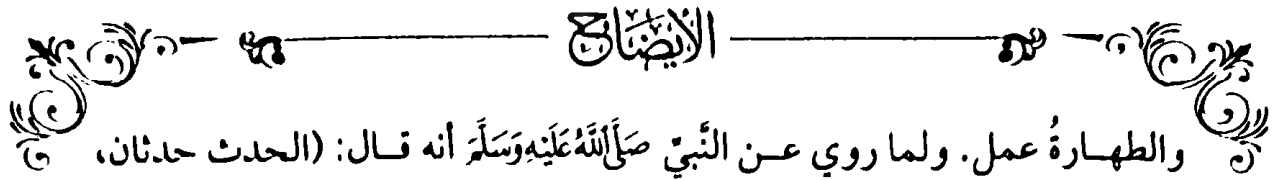 الإيضاح
والطهارةُ عمل. ولما روي عن النَّبيّ صَلَّى اللَّهُ عَلَيْهِ وَسَلَّمَ أنه قال: (الحدث حدثان،